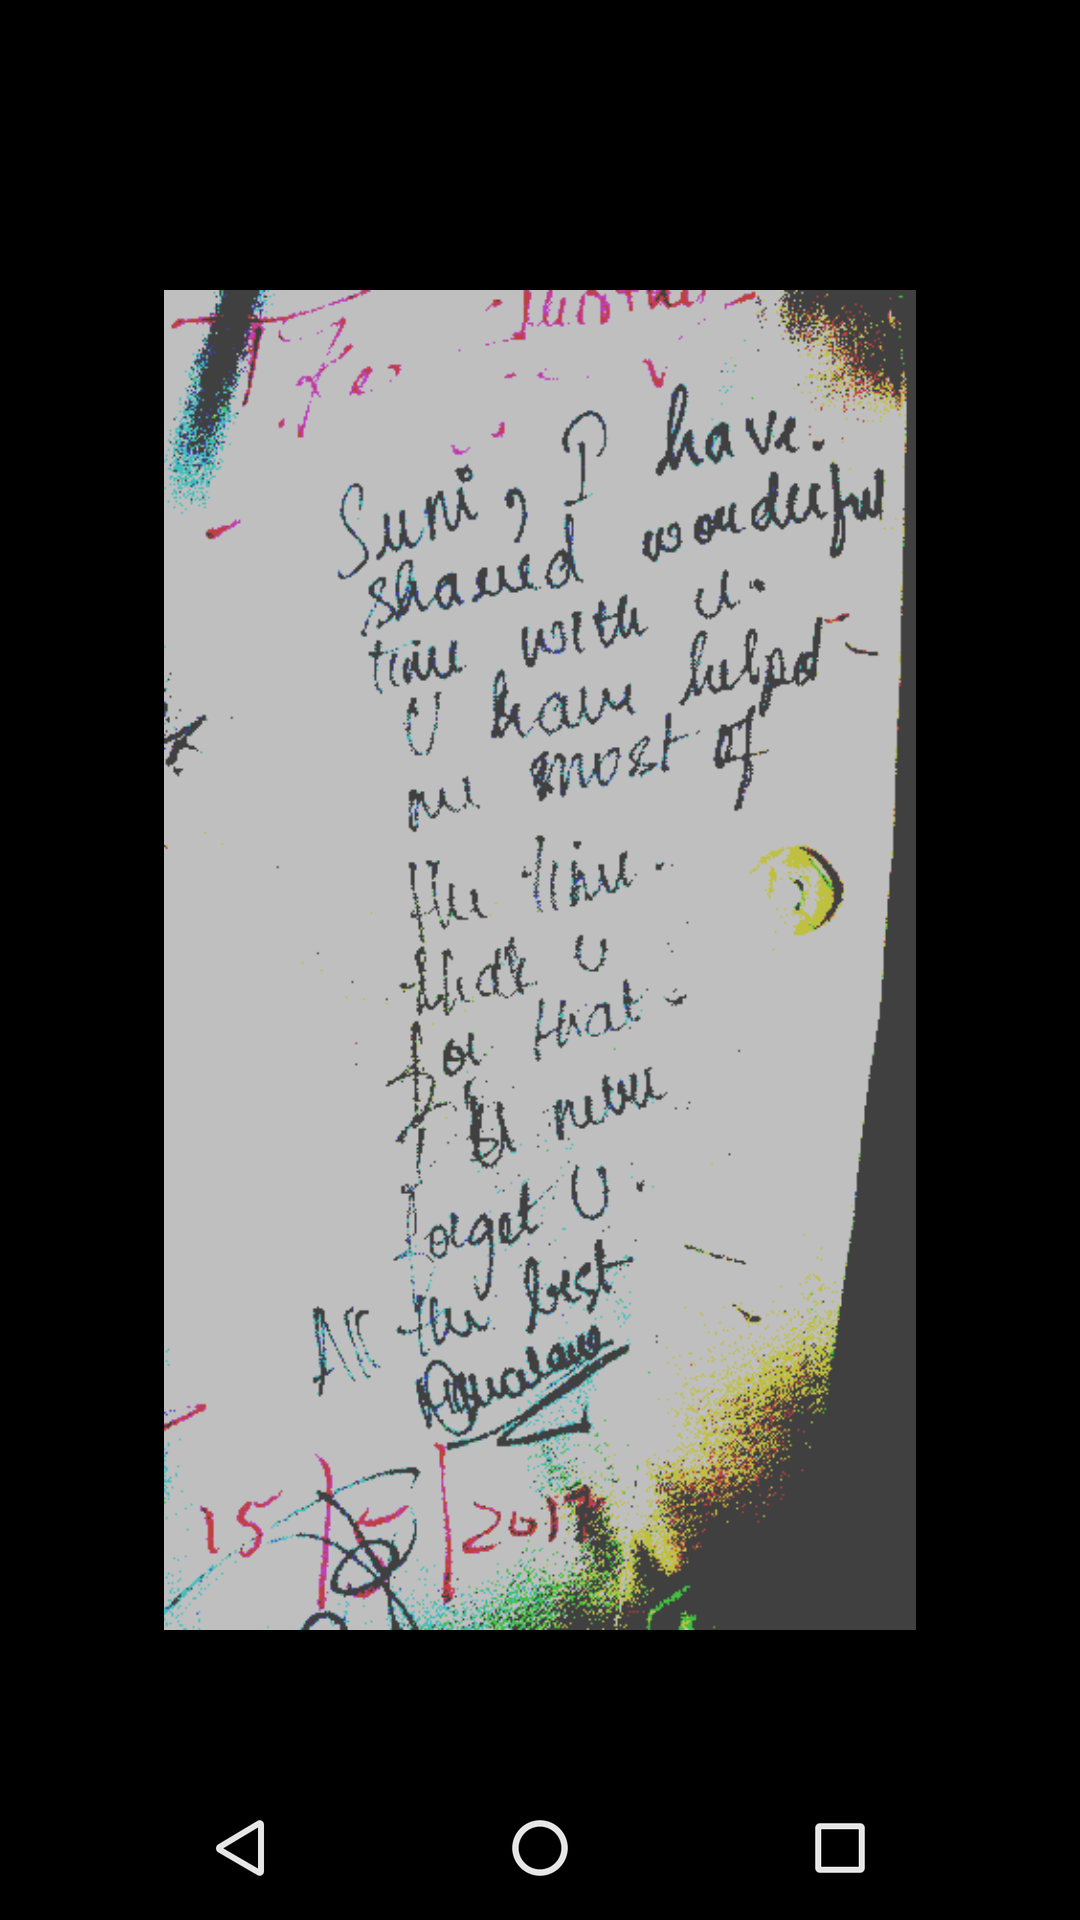 Suni, I have.
shared wonderful
time with u.
U have helped
me most of
the time.
thak u
for that
I'll never
forget U.
All the best
15/5/2017